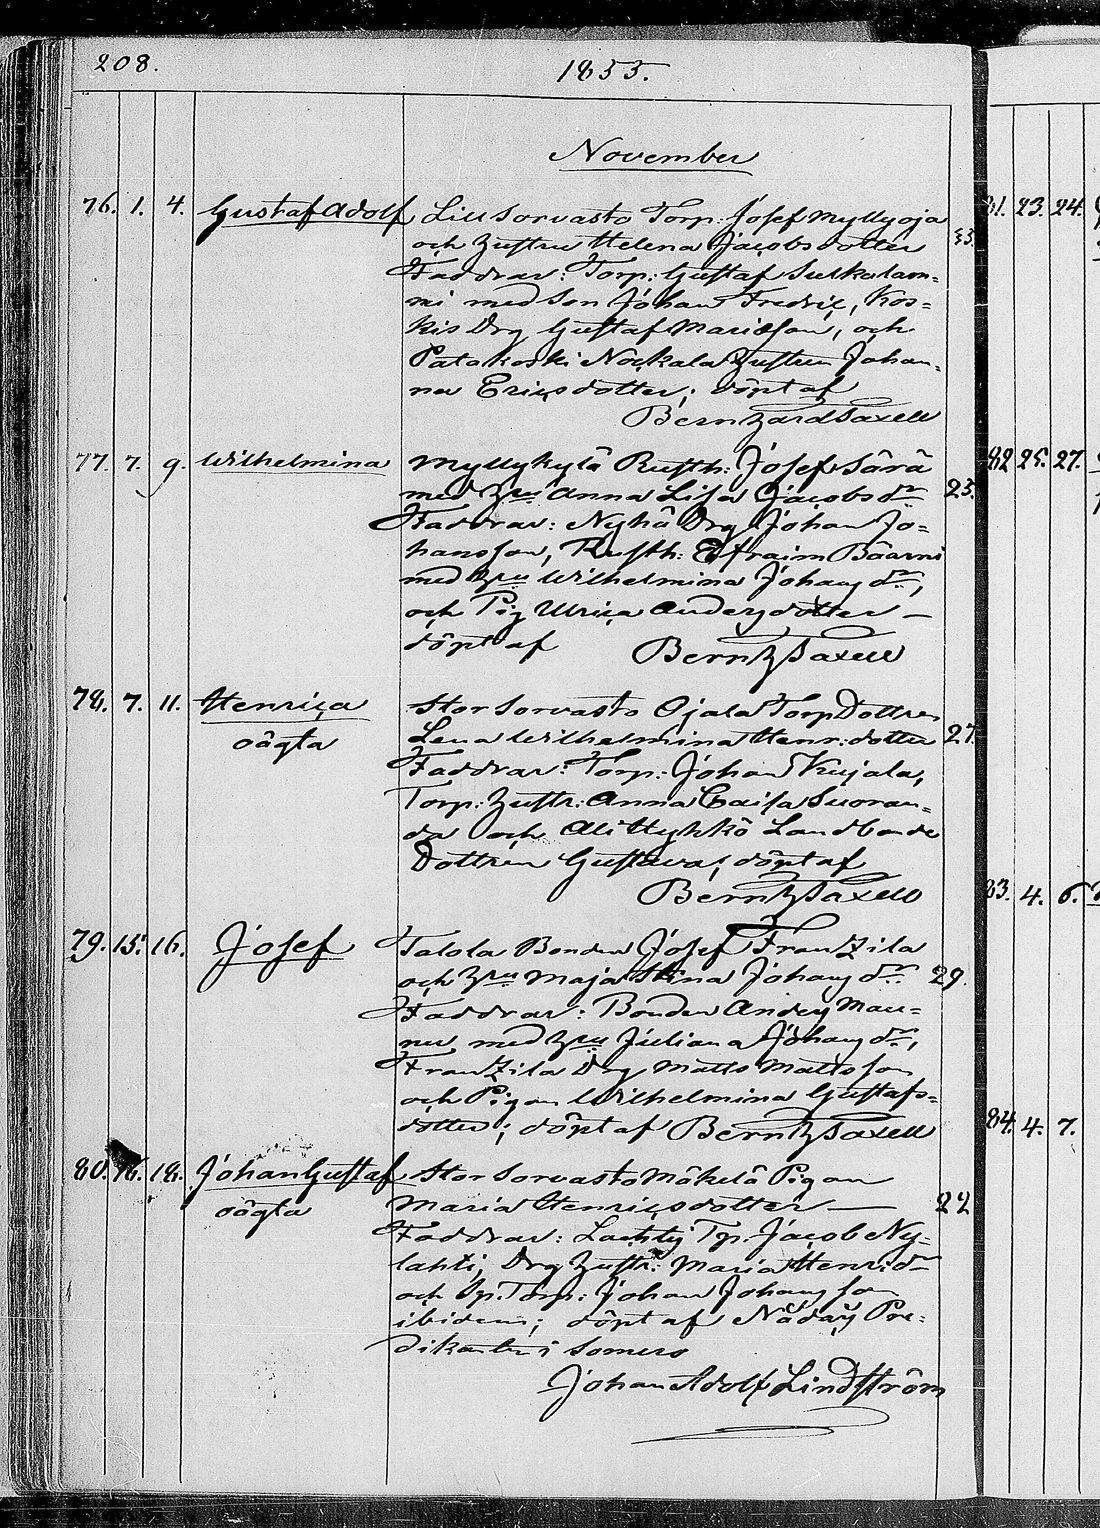 208.
1853.
November
76. 1. 4. Gustaf Adolf Lill Sorvasto Torp: Josef Myllyoja
och hustru Helena Jacobsdotter 33.
Faddrar: Torp: Gustaf Suskalam-
mi med Son Johan Fredric, Kos-
kis Drg Gustaf Mariæson, och
Patakoski Nokkala hustru Johan-
na Ericsdotter; döpt af
Bernhard Saxell
77. 7. 9. Wilhelmina Myllykylä Rusth: Josef Särä
med hru Anna Lisa Jacobsdr 23.
Faddrar: Nyhä Drg Johan Jo-
hansson, Rusth: Efraim Bäärni
med hru Wilhelmina Johansdr,
och Pig Ulrica Andersdotter —
döpt af Bernh Saxell
78. 7. 11. Henrica Stor Sorvasto Ojala Torp Dottren
oägta Lena Wilhelmina Henr: dotter 27.
Faddrar: Torp: Johan Kujala,
Torp: hustr: Anna Caisa Suoran-
da och Ali Hykkö Landbonde
Dottren Gustava; döpt af
Bernh Saxell
79. 15. 16. Josef Talola Bonden Josef Franzila
och hru Maja Stina Johansdr 29.
Faddrar: Bonden Anders Mau-
nu med hru Juliana Johansdr,
Franzila Drg Matts Mattsson
och Pigan Wilhelmina Gustafs-
dotter; döpt af Bernh Saxell
80. 16. 18. Johan Gustaf Stor Sorvasto Mäkelä Pigan
oägta Maria Henricsdotter — 22
Faddrar: Torp Jacob Ny-
lahti, Drg hustr: Maria Henricdr
och Sp. Torp: Johan Johansson
ibidem; döpt af Nådaårs Pre-
dikanten i Somero
Johan Adolf Lindström
81. 23. 24.
82. 25. 27.
83. 4. 6.
84. 4. 7.